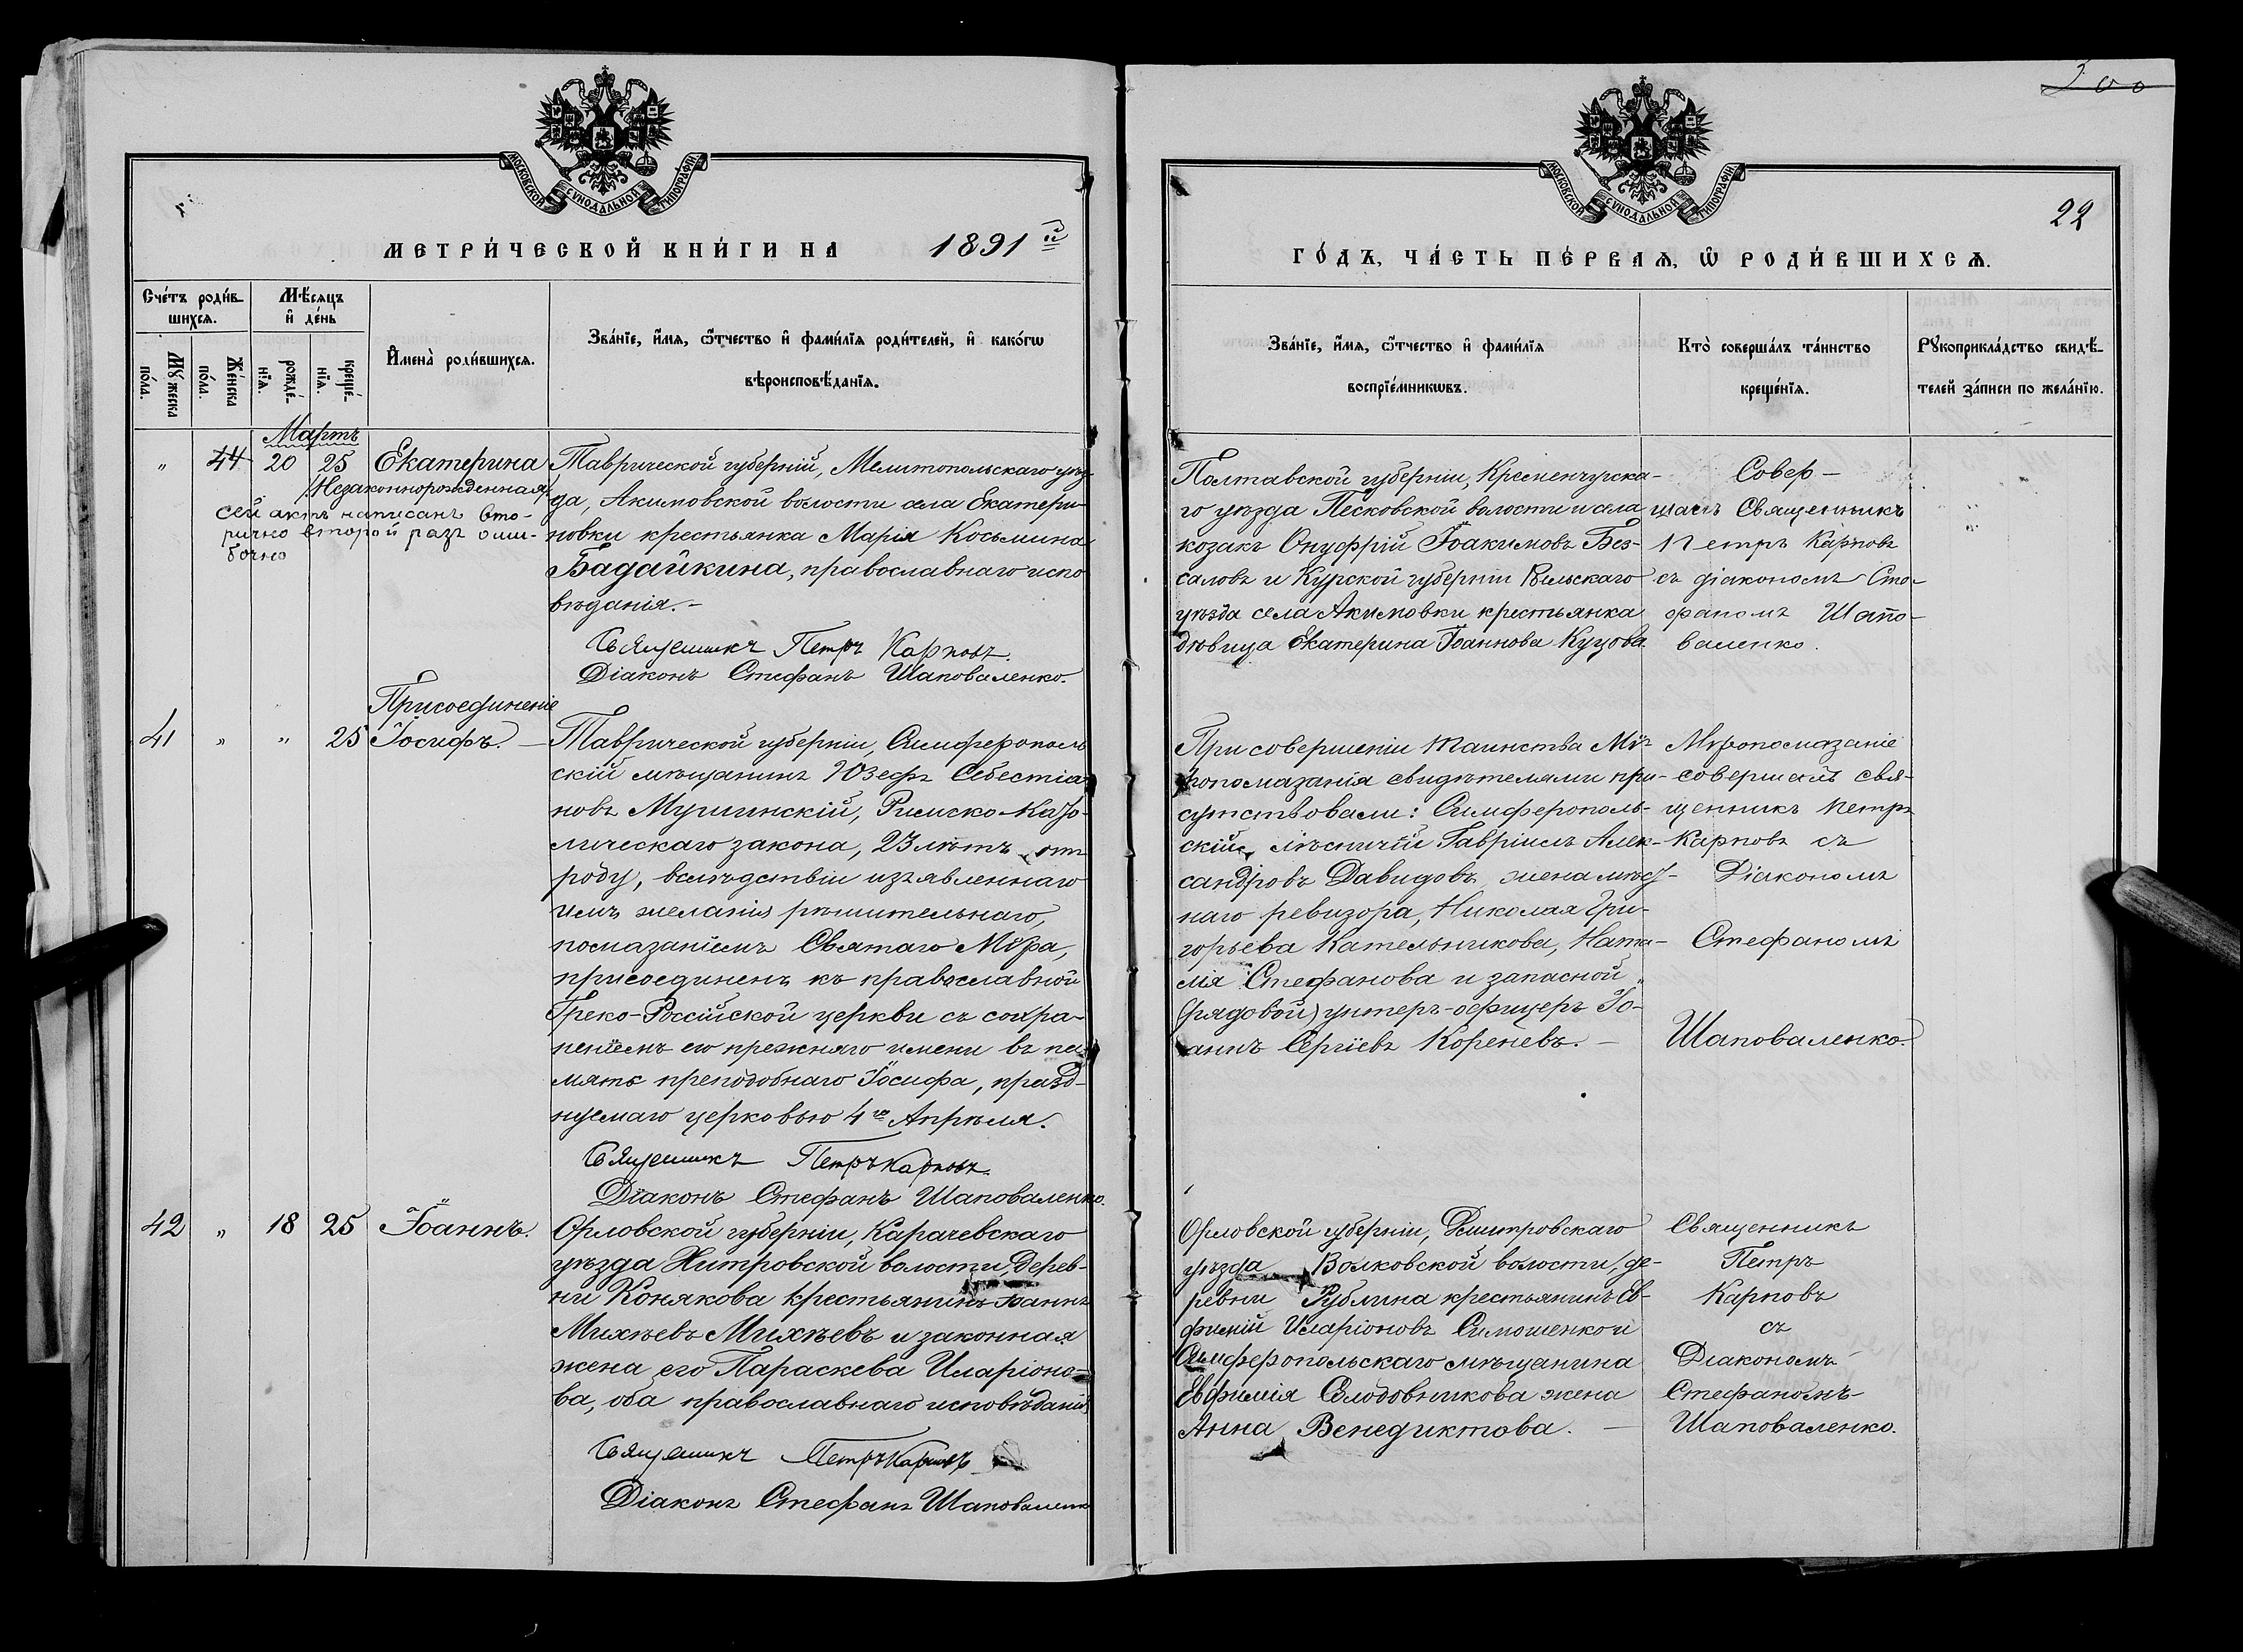 300
22
МОСКОВСКОЙ СѴНОДАЛЬНОЙ ТИПОГРАФІИ
МЕТРИ́ЧЕСКОЙ КНИ́ГИ НА 1891й
Сче́тъ роди́в-
шихсѧ.
Мѣ́сѧцъ
и҆ де́нь
Мꙋ́жеска
по́ла.
Же́нска
по́ла.
рожде́-
нїѧ.
креще́-
нїѧ.
И҆мена̀ роди́вшихсѧ.
Зва́нїе, и҆́мѧ, ѻ҆́тчество и҆ фами́лїѧ роди́телей, и҆ како́гѡ
вѣроисповѣ́данїѧ.
Мартъ
" 44 20 25 Екатерина
/Незаконнорожденная/
Сей актъ написанъ вто-
рично второй разъ оши-
бочно
Таврической губерній, Мелитопольскаго уѣз-
да, Акимовской волости села Екатери-
новки крестьянка Марія Косьмина
Бадайкина, православнаго испо
вѣданія.-
Священникъ Петръ Карповъ.
Діаконъ Стефанъ Шаповаленко.
Присоединеніе
41 " " 25 Іосифъ. —
Таврической губерніи, Симферополь
скій мѣщанинъ Юзефъ Себестіа
новъ Мушинскій, Римско-Каѳо-
лическаго закона, 23 лѣтъ отъ
роду, вслѣдствіи изъявленнаго
имъ желанія рѣшительнаго,
помазаніемъ Святаго Мѵра,
присоединенъ къ православной
Греко-Россійской церкви съ сохра-
неніемъ его прежняго имени въ па-
мять преподобнаго Іосифа, празд-
нуемаго церковью 4го Апрѣля.
Священникъ Петръ Карповъ.
Діаконъ Стефанъ Шаповаленко.
42 " 18 25 Іоаннъ.
Орловской губерніи, Карачевскаго
уѣзда Хитровской волости, дерев-
ни Конякова крестьянинъ Іоаннъ
Михѣевъ Михѣевъ и законная
жена его Параскева Иларіоно-
ва, оба православнаго исповѣданія
Священникъ Петръ Карповъ
Діаконъ Стефанъ Шаповаленко
МОСКОВСКОЙ СѴНОДАЛЬНОЙ ТИПОГРАФІИ
ГО́ДЪ, ЧА́СТЬ ПЕ́РВАѦ, Ѡ҆ РОДИ́ВШИХСѦ.
Зва́нїе, и҆́мѧ, ѻ҆́тчество и҆ фами́лїѧ
воспрїе́мникѡвъ.
Кто̀ соверша́лъ та́инство
креще́нїѧ.
Рꙋкоприкла́дство свидѣ́-
телей за́писи по жела́нїю.
Полтавской губерніи, Кременчугска-
го уѣзда Песковской волости и села
козакъ Онуфрій Іоакимовъ Без-
саловъ и Курской губерніи Рыльскаго
уѣзда села Акимовки крестьянка
дѣвица Екатерина Іоаннова Куцова.
Совер-
шалъ Священникъ
Петръ Карповъ
съ діакономъ Сте-
фаномъ Шапо-
валенко.
При совершеніи таинства Мѵ-
ропомазанія свидѣтелями при-
сутствовали: Симферополь-
скій лѣсничій Гавріилъ Алек-
сандровъ Давидовъ, жена лѣс-
наго ревизора, Николая Гри-
горьева Кательникова, Ната-
лія Стефанова и запасной
(рядовой) унтеръ-офицеръ Іо-
аннъ Сергіевъ Кореневъ. —
Мѵропомазаніе
совершалъ свя-
щенникъ Петръ
Карповъ съ
Діакономъ
Стефаномъ
Шаповаленко.
Орловской губерніи, Дмитровскаго
уѣзда Волковской волости, де-
ревни Рублина крестьянинъ Ев-
фимій Иларіоновъ Симошенкой
Симферопольскаго мѣщанина
Евфимія Солодовникова жена
Анна Венедиктова. —
Священникъ
Петръ
Карповъ
съ
Діакономъ
Стефаномъ
Шаповаленко.